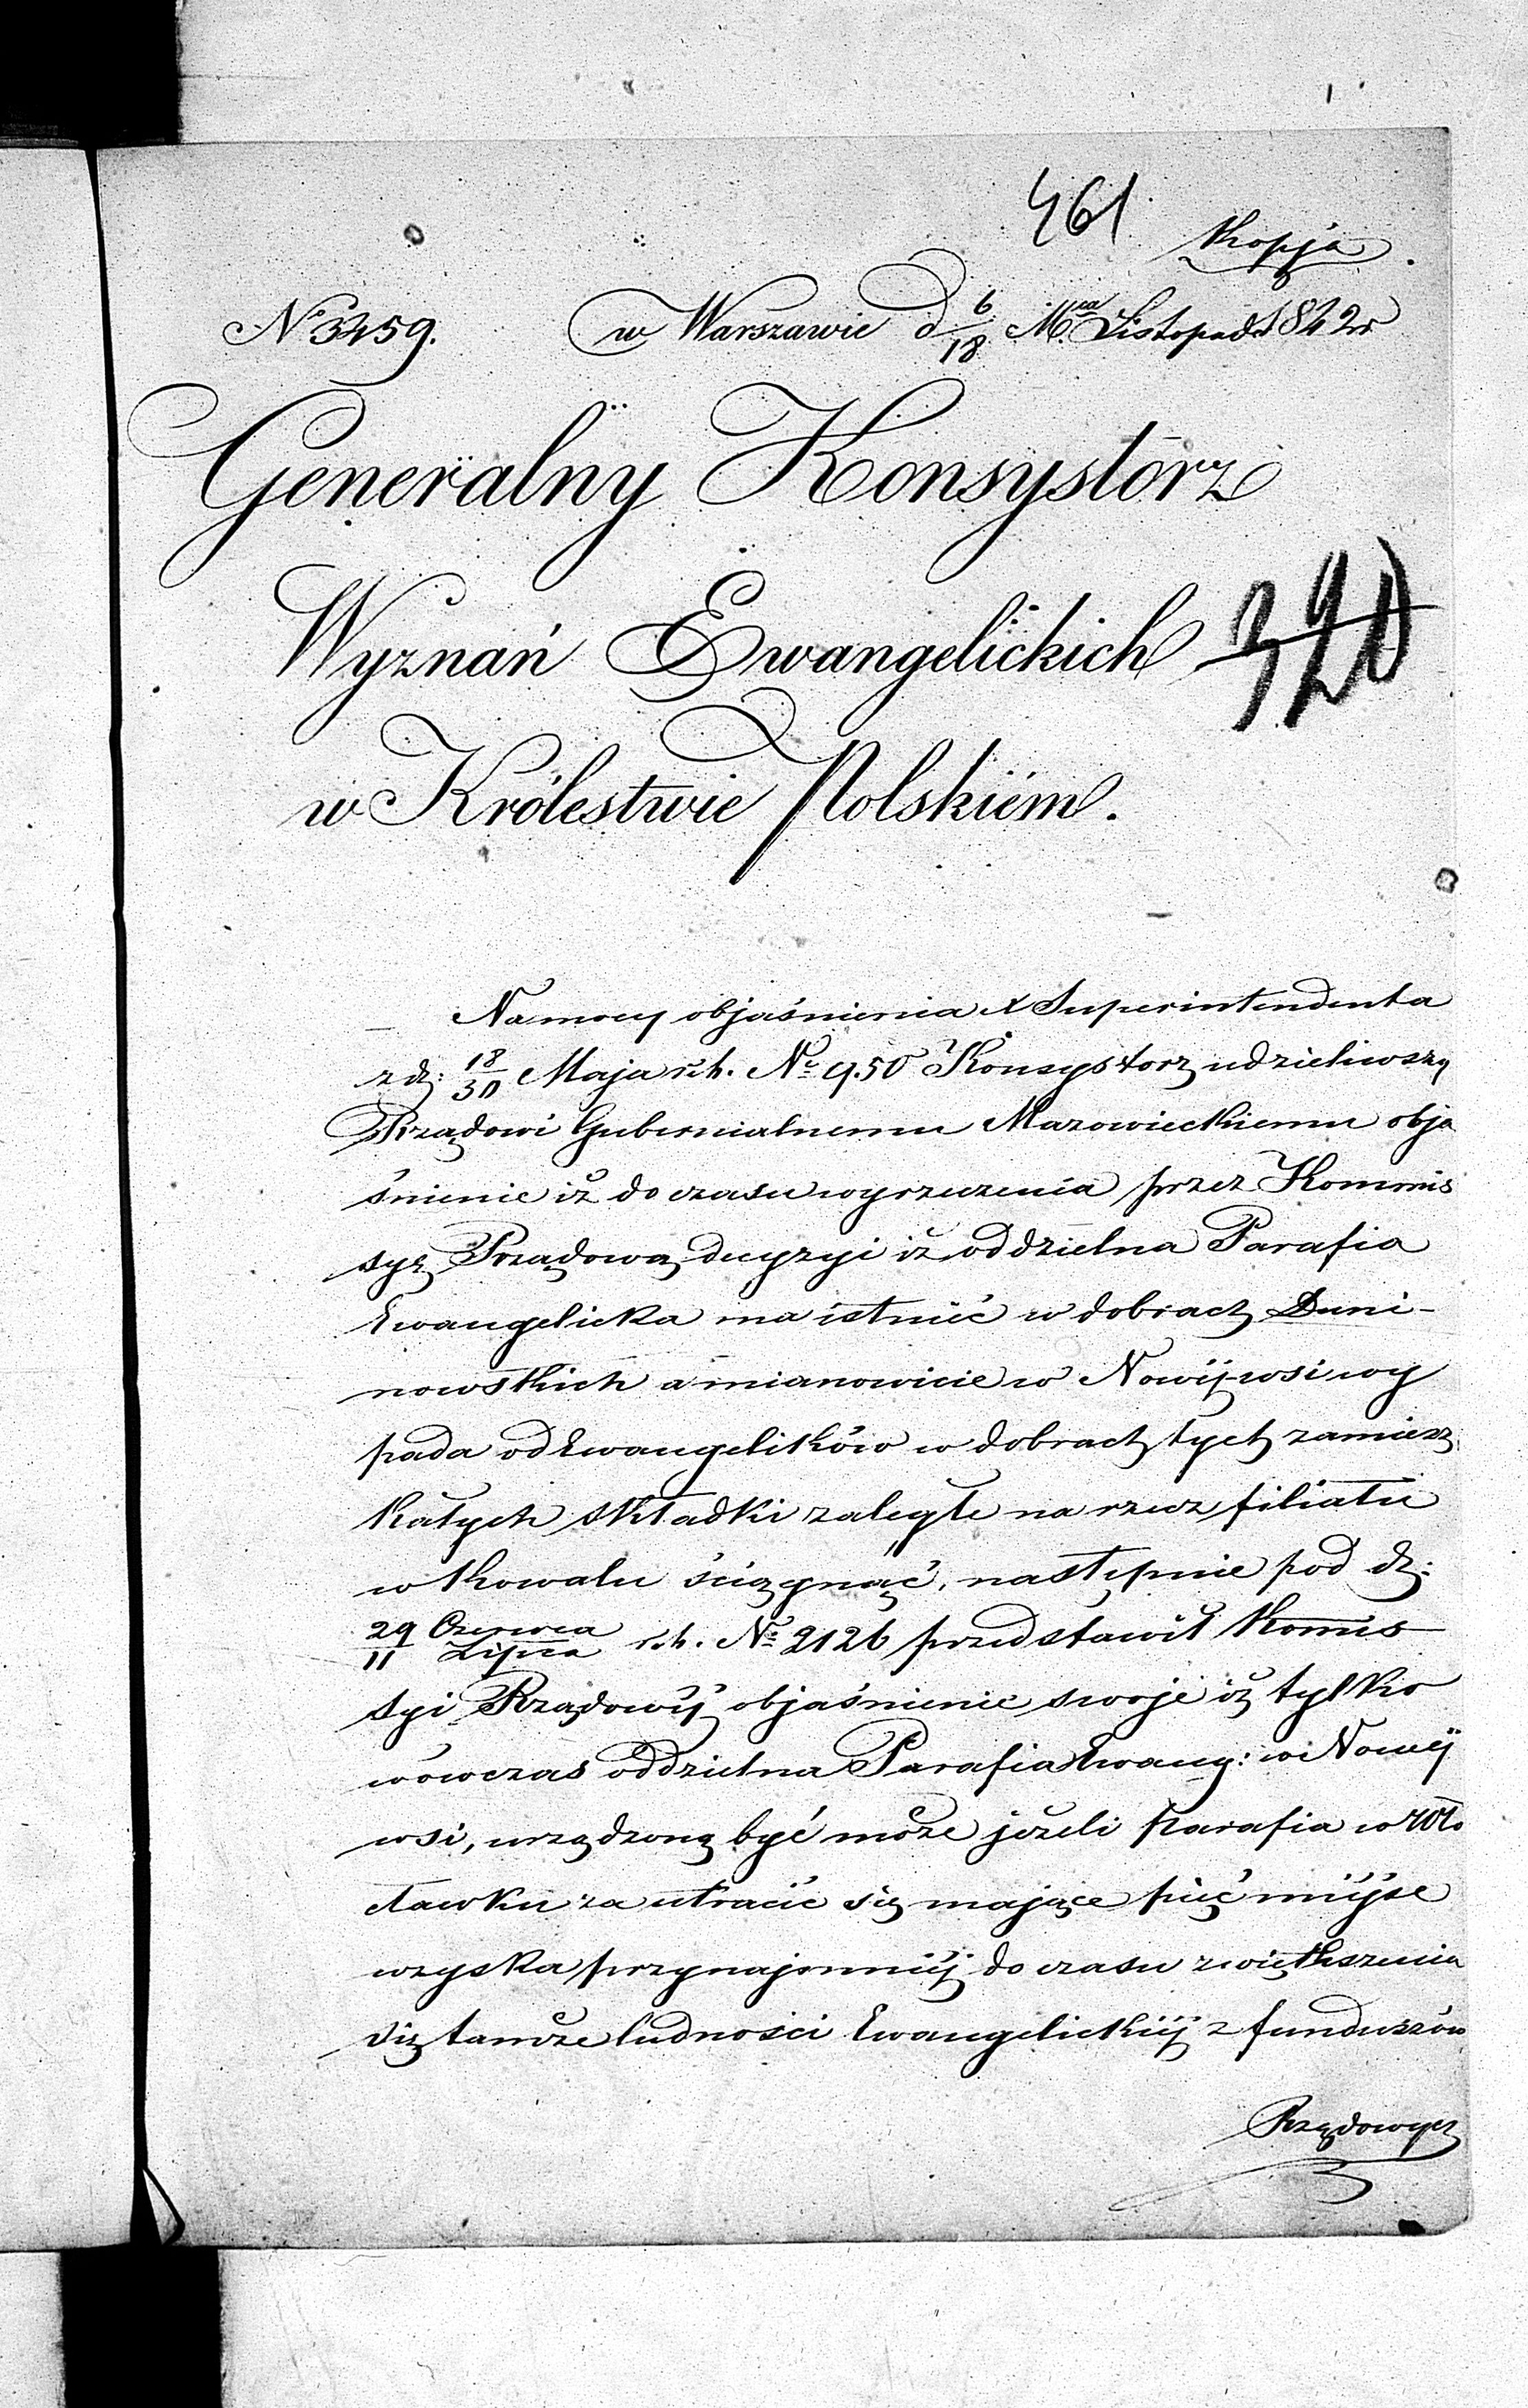 461
Kopja
N 3459. w Warszawie d 6/18 M.ca Listopada 1842 r
Generalny Konsystorz
Wyznań Ewangelickich
320
w Królestwie Polskiém.
Na mocy objaśnienia X Superintendenta
z d: 18/30 Maja r.b. № 950 Konsystorz udzieliwszy
Rządowi Gubernialnemu Mazowieckiemu obja
śnienie iż do czasu wyrzeczenia przez Kommis
syę Rządową decyzyi iż oddzielna Parafia
Ewangelicka ma istnieć w dobrach Duni-
nowskich a mianowicie w Nowéjwsi wy
pada od Ewangelików w dobrach tych zamiesz
kałych składki zaległe na rzecz filiału
w Kowalu ściągnąć, następnie pod d:
29 Czerwca/11 Lipca r.b. № 2126 przedstawił Komis
syi Rządowéj objaśnienie swoje iż tylko
wówczas oddzielna Parafia Ewang: w Nowéj
wsi, urządzoną być może jeżeli Parafia w Wło
cławku za utracić się mające pięć miejsc
uzyska przynajmniéj do czasu zwiększenia
się tamże ludności Ewangelickiéj z funduszów
Rządowych